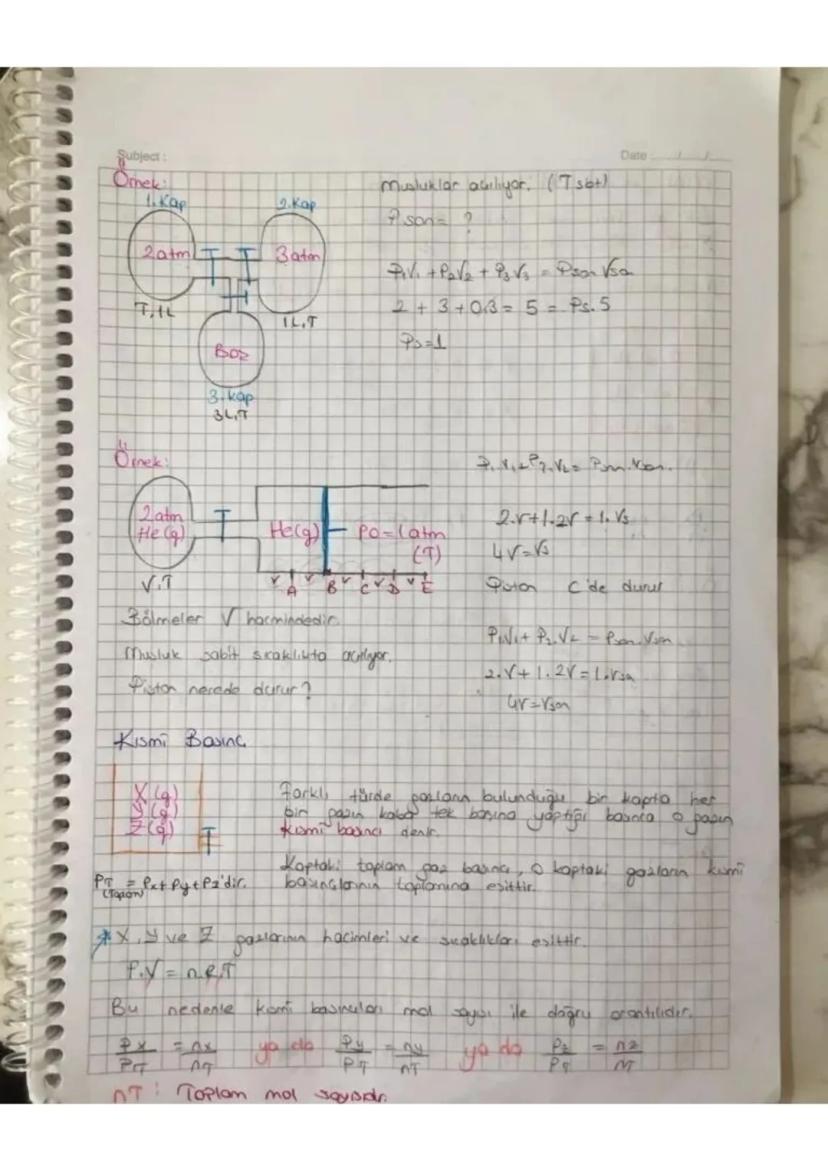 Subject:
Date:
Örnek:
1. Kap
2. Kap
2 atm
3 atm
T, 1L
1L, T
Boş
3. Kap
3L, T
Musluklar açılıyor. (T sbt)
Pson = ?
P₁V₁ + P₂V₂ + P₃V₃ = Pson Vson
2 + 3 + 0.3 = 5 = Ps. 5
Ps = 1
Örnek:
2 atm
He (g)
V, T
He(g)
P0 = 1 atm
(T)
V V V V V
A B C D E
Bölmeler V hacmindedir.
Musluk sabit sıcaklıkta açılıyor.
Piston nerede durur?
P₁.V₁ + P₂.V₂ = Pson.Vson.
2.V + 1.2V = 1.Vs
4V = Vs
Piston C'de durur
P₁V₁ + P₂.V₂ = Pson.Vson
2.V + 1.2V = 1.Vson
4V = Vson
Kısmî Basınç
X (g)
Y (g)
Z (g)
T
PT = Px + Py + Pz'dir.
(Toplam)
Farklı türde gazların bulunduğu bir kapta her
bir gazın kaba tek başına yaptığı basınca o gazın
kısmî basıncı denir.
Kaptaki toplam gaz basıncı, o kaptaki gazların kısmî
basınçlarının toplamına eşittir.
* X, Y ve Z gazlarının hacimleri ve sıcaklıkları eşittir.
P.V = n.R.T
Bu nedenle kısmî basınçları mol sayısı ile doğru orantılıdır.
Px/PT = nx/nT ya da Py/PT = ny/nT ya da Pz/PT = nz/nT
nT : Toplam mol sayısıdır.